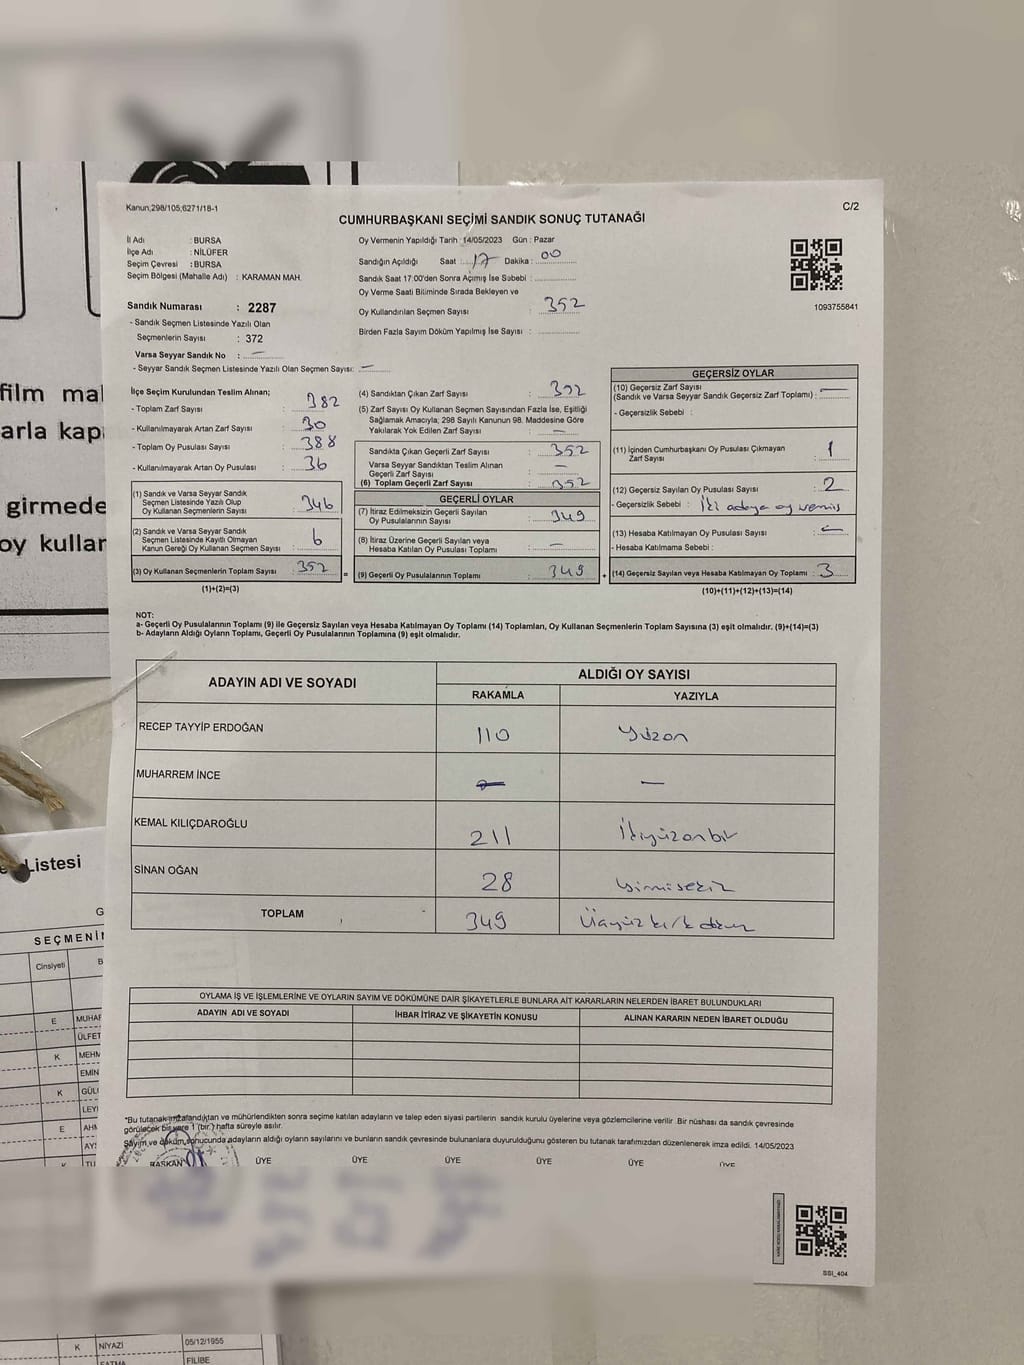 film mal
arla kapa
girmede
oy kullar
Kanun,298/105;6271/18-1
C/2
CUMHURBAŞKANI SEÇİMİ SANDIK SONUÇ TUTANAĞI
İl Adı : BURSA
İlçe Adı : NİLÜFER
Seçim Çevresi : BURSA
Seçim Bölgesi (Mahalle Adı) : KARAMAN MAH.
Sandık Numarası : 2287
- Sandık Seçmen Listesinde Yazılı Olan
Seçmenlerin Sayısı : 372
Varsa Seyyar Sandık No : —
- Seyyar Sandık Seçmen Listesinde Yazılı Olan Seçmen Sayısı: —
Oy Vermenin Yapıldığı Tarih 14/05/2023 Gün : Pazar
Sandığın Açıldığı Saat : 17 Dakika : 00
Sandık Saat 17:00'den Sonra Açımış İse Sebebi :
Oy Verme Saati Bitiminde Sırada Bekleyen ve
Oy Kullandırılan Seçmen Sayısı : 352
Birden Fazla Sayım Döküm Yapılmış İse Sayısı :
1093755841
İlçe Seçim Kurulundan Teslim Alınan;
- Toplam Zarf Sayısı : 382
- Kullanılmayarak Artan Zarf Sayısı : 30
- Toplam Oy Pusulası Sayısı : 388
- Kullanılmayarak Artan Oy Pusulası : 36
(1) Sandık ve Varsa Seyyar Sandık
Seçmen Listesinde Yazılı Olup
Oy Kullanan Seçmenlerin Sayısı : 346
(2) Sandık ve Varsa Seyyar Sandık
Seçmen Listesinde Kayıtlı Olmayan
Kanun Gereği Oy Kullanan Seçmen Sayısı : 6
(3) Oy Kullanan Seçmenlerin Toplam Sayısı : 352
(1)+(2)=(3)
(4) Sandıktan Çıkan Zarf Sayısı : 352
(5) Zarf Sayısı Oy Kullanan Seçmen Sayısından Fazla İse, Eşitliği
Sağlamak Amacıyla; 298 Sayılı Kanunun 98. Maddesine Göre
Yakılarak Yok Edilen Zarf Sayısı : —
Sandıkta Çıkan Geçerli Zarf Sayısı : 352
Varsa Seyyar Sandıktan Teslim Alınan
Geçerli Zarf Sayısı : —
(6) Toplam Geçerli Zarf Sayısı : 352
GEÇERLİ OYLAR
(7) İtiraz Edilmeksizin Geçerli Sayılan
Oy Pusulalarının Sayısı : 349
(8) İtiraz Üzerine Geçerli Sayılan veya
Hesaba Katılan Oy Pusulası Toplamı : —
= (9) Geçerli Oy Pusulalarının Toplamı : 349
GEÇERSİZ OYLAR
(10) Geçersiz Zarf Sayısı
(Sandık ve Varsa Seyyar Sandık Geçersiz Zarf Toplamı) : —
- Geçersizlik Sebebi :
(11) İçinden Cumhurbaşkanı Oy Pusulası Çıkmayan
Zarf Sayısı : 1
(12) Geçersiz Sayılan Oy Pusulası Sayısı : 2
- Geçersizlik Sebebi : İki adaya oy vermiş
(13) Hesaba Katılmayan Oy Pusulası Sayısı : —
- Hesaba Katılmama Sebebi :
+ (14) Geçersiz Sayılan veya Hesaba Katılmayan Oy Toplamı : 3
(10)+(11)+(12)+(13)=(14)
NOT:
a- Geçerli Oy Pusulalarının Toplamı (9) ile Geçersiz Sayılan veya Hesaba Katılmayan Oy Toplamı (14) Toplamları, Oy Kullanan Seçmenlerin Toplam Sayısına (3) eşit olmalıdır. (9)+(14)=(3)
b- Adayların Aldığı Oyların Toplamı, Geçerli Oy Pusulalarının Toplamına (9) eşit olmalıdır.
ADAYIN ADI VE SOYADI ALDIĞI OY SAYISI
RAKAMLA YAZIYLA
RECEP TAYYİP ERDOĞAN 110 Yüzon
MUHARREM İNCE — —
KEMAL KILIÇDAROĞLU 211 İkiyüzonbir
SİNAN OĞAN 28 yirmisekiz
TOPLAM 349 Üçyüzkırkdokuz
OYLAMA İŞ VE İŞLEMLERİNE VE OYLARIN SAYIM VE DÖKÜMÜNE DAİR ŞİKAYETLERLE BUNLARA AİT KARARLARIN NELERDEN İBARET BULUNDUKLARI
ADAYIN ADI VE SOYADI İHBAR İTİRAZ VE ŞİKAYETİN KONUSU ALINAN KARARIN NEDEN İBARET OLDUĞU
*Bu tutanak imzalandıktan ve mühürlendikten sonra seçime katılan adayların ve talep eden siyasi partilerin sandık kurulu üyelerine veya gözlemcilerine verilir Bir nüshası da sandık çevresinde
görülecek bir yere 1 (bir ) hafta süreyle asılır.
Sayım ve döküm sonucunda adayların aldığı oyların sayılarını ve bunların sandık çevresinde bulunanlara duyurulduğunu gösteren bu tutanak tarafımızdan düzenlenerek imza edildi. 14/05/2023
BAŞKAN ÜYE ÜYE ÜYE ÜYE ÜYE ÜYE
SSI_404
Listesi
G
SEÇMENİN
Cinsiyeti B
E MUHAR
ÜLFET
K MEHM
EMİN
K GÜL
LEY
E AH
AYŞ
K TU
K NİYAZİ 05/12/1955
FATMA FİLİBE